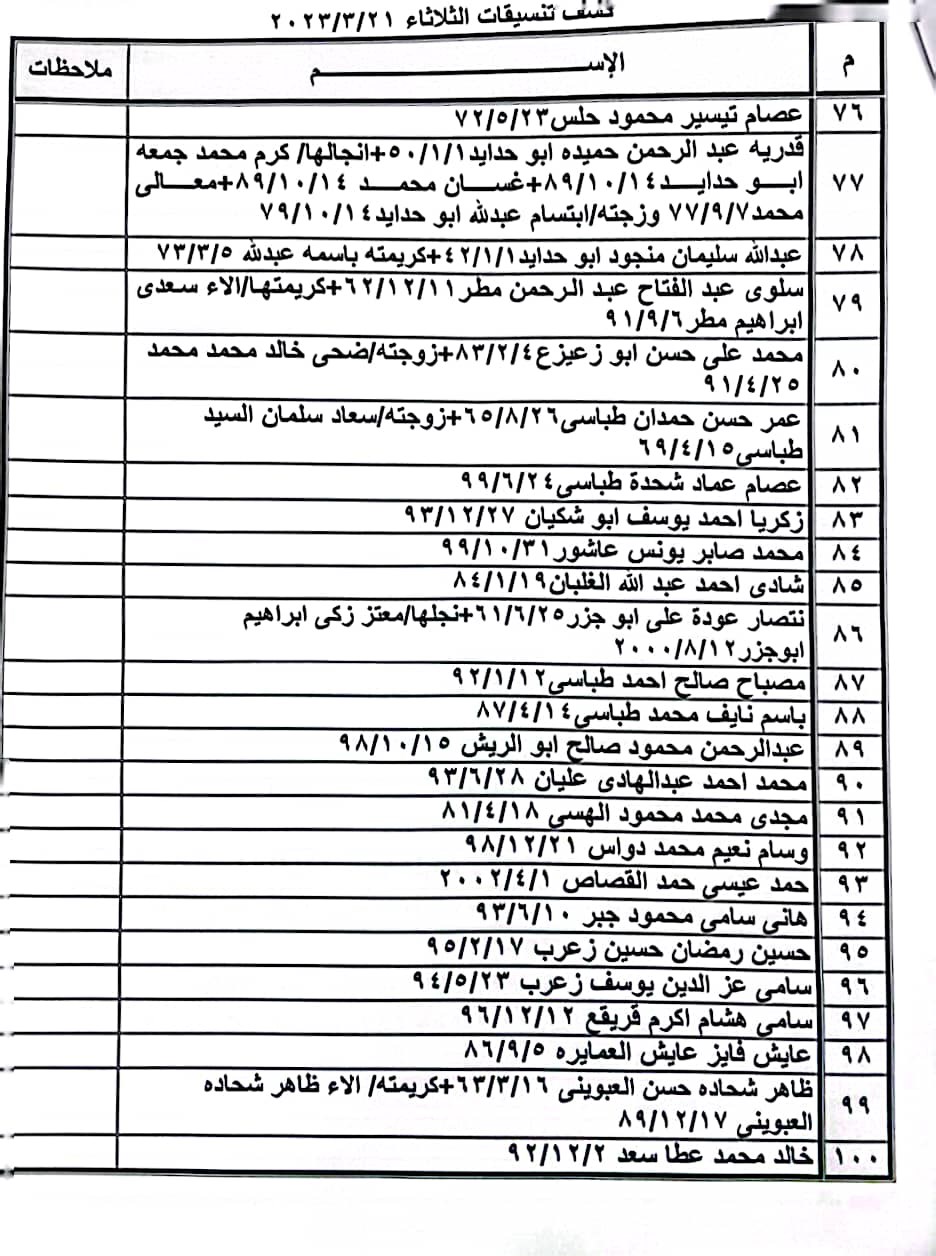 كشف تنسيقات الثلاثاء ٢٠٢٣/٣/٢١
م الإســـــــم ملاحظات
٧٦ عصام تيسير محمود حلس٧٢/٥/٢٣
٧٧ قدريه عبد الرحمن حميده ابو حدايد٥٠/١/١+انجالها/ كرم محمد جمعه
ابـــو حدايـــد٨٩/١٠/١٤+غســـان محمـــد ٨٩/١٠/١٤+معـــالى
محمد٧٧/٩/٧ وزجته/ابتسام عبدلله ابو حدايد٧٩/١٠/١٤
٧٨ عبدالله سليمان منجود ابو حدايد٤٢/١/١+كريمته باسمه عبدلله ٧٣/٣/٥
٧٩ سلوى عبد الفتاح عبد الرحمن مطر٦٢/١٢/١١+كريمتها/الاء سعدى
ابراهيم مطر٩١/٩/٦
٨٠ محمد على حسن ابو زعيزع٨٣/٢/٤+زوجته/ضحى خالد محمد محمد
٩١/٤/٢٥
٨١ عمر حسن حمدان طباسى٦٥/٨/٢٦+زوجته/سعاد سلمان السيد
طباسى٦٩/٤/١٥
٨٢ عصام عماد شحدة طباسى٩٩/٦/٢٤
٨٣ زكريا احمد يوسف ابو شكيان ٩٣/١٢/٢٧
٨٤ محمد صابر يونس عاشور٩٩/١٠/٣١
٨٥ شادى احمد عبد الله الغلبان٨٤/١/١٩
٨٦ نتصار عودة على ابو جزر٦١/٦/٢٥+نجلها/معتز زكى ابراهيم
ابوجزر٢٠٠٠/٨/١٢
٨٧ مصباح صالح احمد طباسى٩٢/١/١٢
٨٨ باسم نايف محمد طباسى٨٧/٤/١٤
٨٩ عبدالرحمن محمود صالح ابو الريش ٩٨/١٠/١٥
٩٠ محمد احمد عبدالهادى عليان ٩٣/٦/٢٨
٩١ مجدى محمد محمود الهسى ٨١/٤/١٨
٩٢ وسام نعيم محمد دواس ٩٨/١٢/٢١
٩٣ حمد عيسى حمد القصاص ٢٠٠٢/٤/١
٩٤ هانى سامى محمود جبر ٩٣/٦/١٠
٩٥ حسين رمضان حسين زعرب ٩٥/٢/١٧
٩٦ سامى عز الدين يوسف زعرب ٩٤/٥/٢٣
٩٧ سامى هشام اكرم قريقع ٩٦/١٢/١٢
٩٨ عايش فايز عايش العمايره ٨٦/٩/٥
٩٩ ظاهر شحاده حسن العبوينى ٦٣/٣/١٦+كريمته/ الاء ظاهر شحاده
العبوينى ٨٩/١٢/١٧
١٠٠ خالد محمد عطا سعد ٩٢/١٢/٢